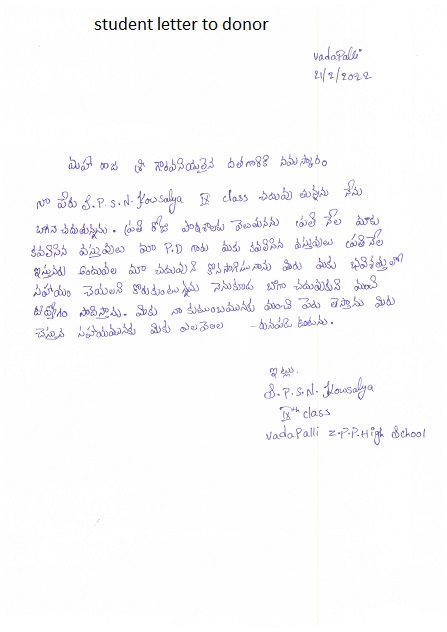 student letter to donor
Vadapalli
21/2/2022
మహా రాజ శ్రీ గౌరవనీయులైన దాతగారికి నమస్కారం
నా పేరు S.P.S.N. Kowsalya IX class చదువు తున్నను నేను
బాగ చదుతున్నను. ప్రతి రోజు పాఠశాలకు వెలుతునను ప్రతి నెల మాకు
కవలిసిన వస్తువులు మా P.D గారు మాకు కవలిసిన వస్తువులు ప్రతి నెల
ఇస్తునరు అందువల మా చదువుని కొనసాగిస్తునాను మీరు మాకు భవిశత్తులో
సహాయం చేయలని కోరుకుంటున్నను నేనుకూడ బాగా చదువుకుని మంచి
ఉద్యోగం సాదిస్తాను. మీరు నా కుటుంబమునకు మంచి పేరు తెస్తాను మీరు
చేస్తున సహాయమునకు మీకు ఎల వేలల - ఉంటను.
ఇట్లు.
S.P.S.N. Kowsalya
IXth class
Vadapalli Z.P.P. High School